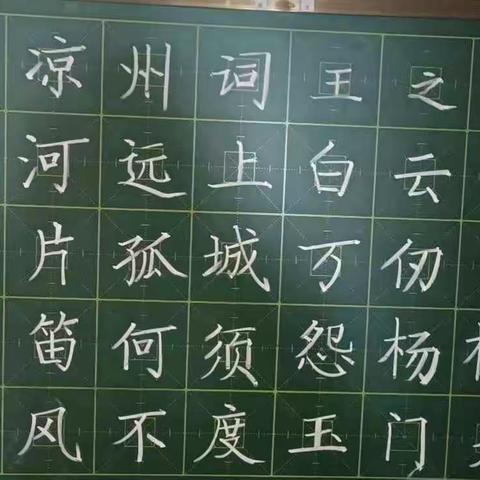 凉州词王之
河远上白云
片孤城万仞
笛何须怨杨
风不度玉门